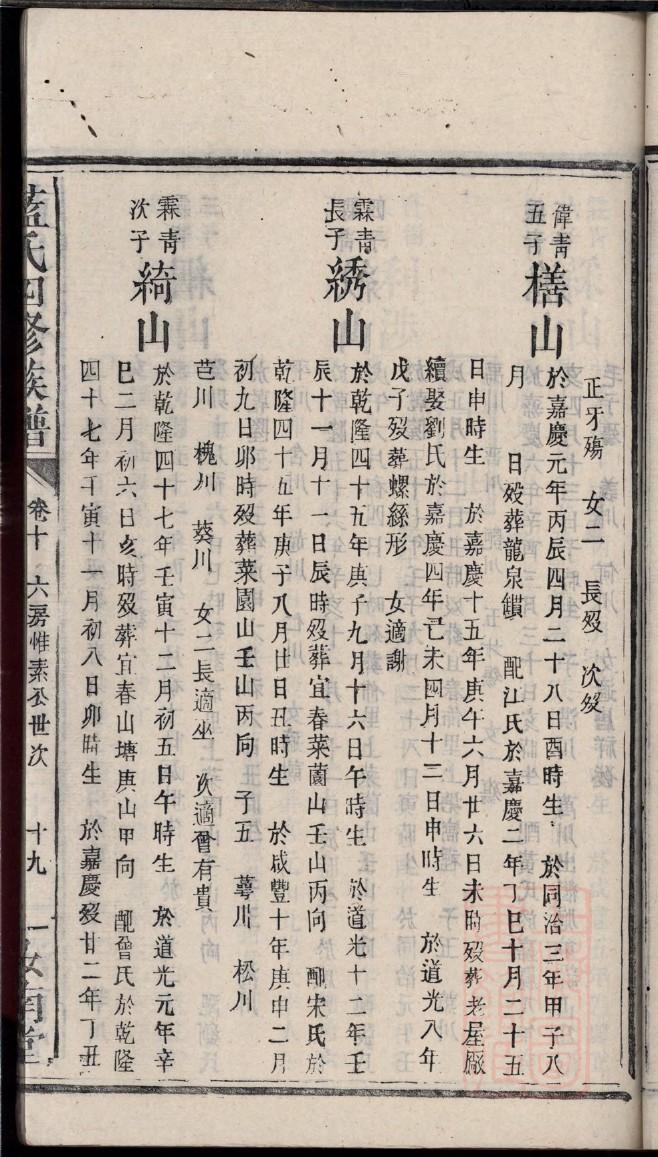 正牙殤 女二 長殁 次殁
偉青
五子
橏山
於嘉慶元年丙辰四月二十八日酉時生 於同治三年甲子八
月 日殁葬龍泉鎻 配江氏於嘉慶二年丁巳十月二十五
日申時生 於嘉慶十五年庚午六月廿六日未時殁葬老屋廠
續娶劉氏於嘉慶四年己未四月十三日申時生 於道光八年
戊子殁葬螺絲形 女適謝
霖青
長子
綉山
於乾隆四十五年庚子九月十六日午時生 於道光十二年壬
辰十一月十一日辰時殁葬宜春菜薗山壬山丙向 配宋氏於
乾隆四十五年庚子八月廿日丑時生 於咸豐十年庚申二月
初九日卯時殁葬菜園山壬山丙向 子五 蕚川 松川
芭川 槐川 葵川 女二長適坐 次適曾有貴
霖青
次子
綺山
於乾隆四十七年壬寅十二月初五日午時生 於道光元年辛
巳二月初六日亥時殁葬宜春山塘庚山甲向 配曾氏於乾隆
四十七年壬寅十一月初八日卯時生 於嘉慶殁廿二年丁丑
藍氏四修族譜
卷十 六房惟素公世次
十九
汝南堂